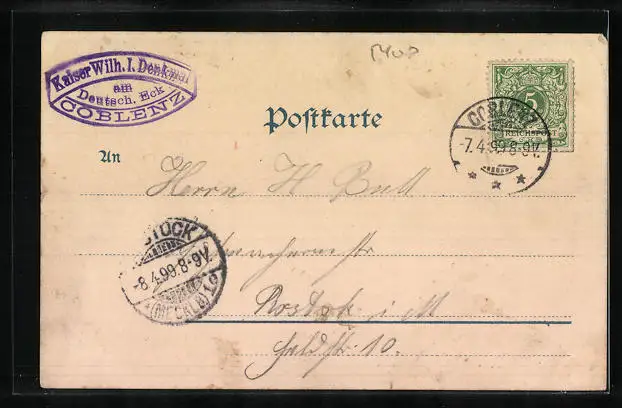 Kaiser Wilh. I. Denkmal
am
Deutsch. Eck
COBLENZ
5
REICHSPOST
COBLENZ
-7.4.99.8-9V.
* * *
Postkarte
An
Herrn H Bull
ROSTOCK
-8.4.99.8-9V.
(MECKLB)
Rostok i. M
Feldstr. 10.